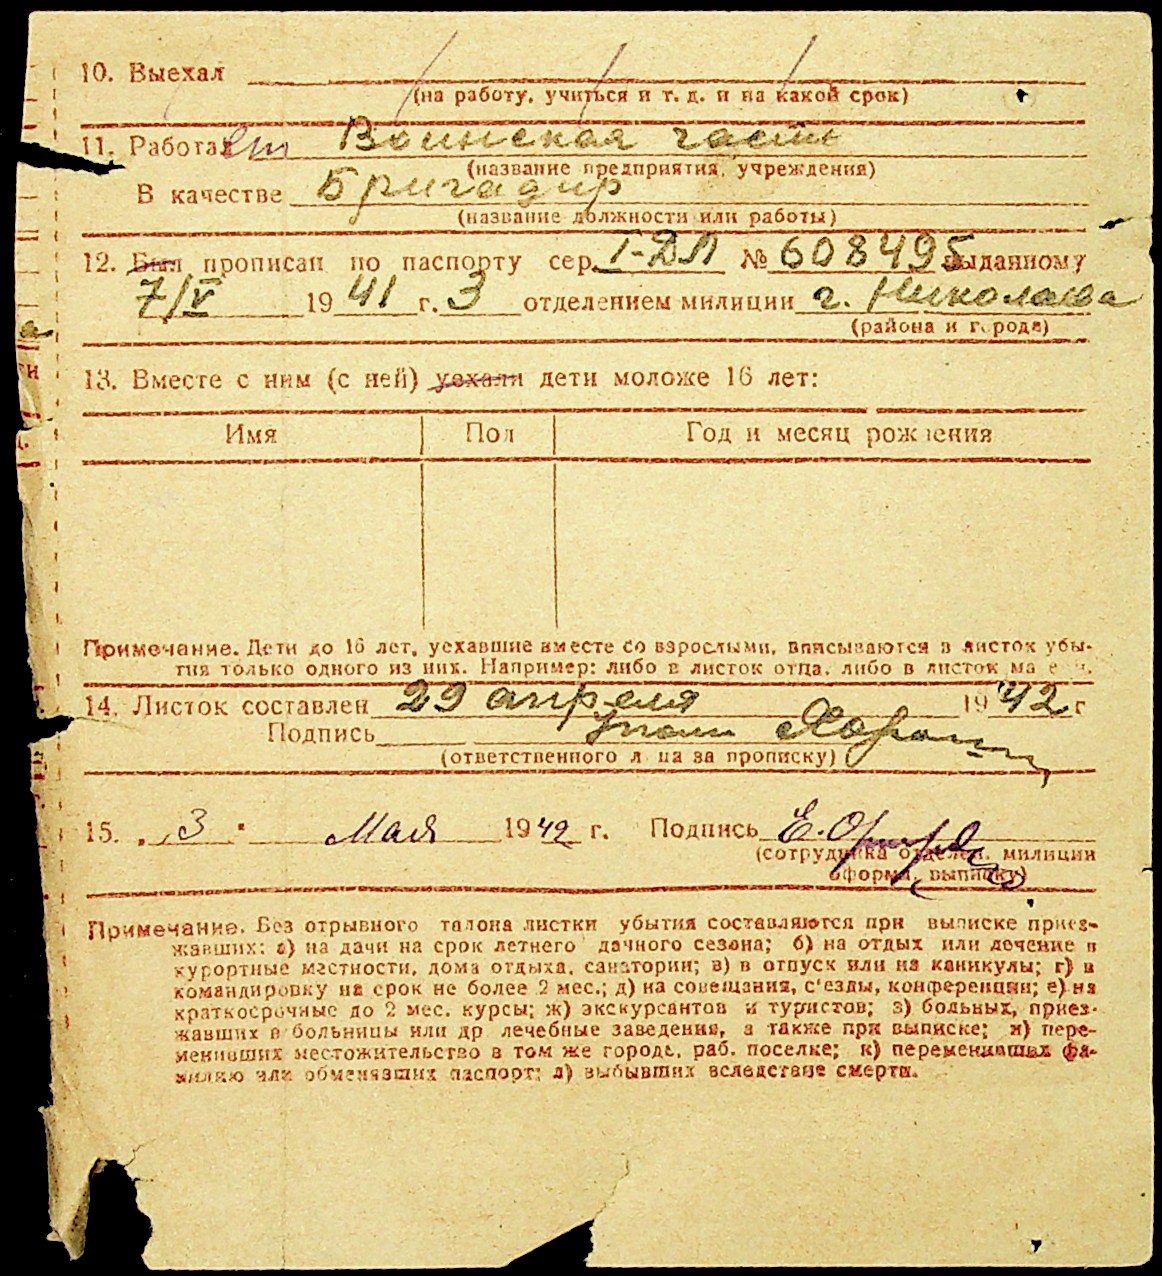 10. Выехал
(на работу, учиться и т. д. и на какой срок)
11. Работает Воинская часть
(название предприятия, учреждения)
В качестве Бригадир
(название должности или работы)
12. Был прописан по паспорту сер. I-ДЛ № 608495 выданному
7/V 1941 г. 3 отделением милиции г. Николаева
(района и города)
13. Вместе с ним (с ней) уехали дети моложе 16 лет:
Имя Пол Год и месяц рождения
Примечание. Дети до 16 лет, уехавшие вместе со взрослыми, вписываются в листок убы-
тия только одного из них. Например: либо в листок отца, либо в листок матери.
14. Листок составлен 29 апреля 1942 г
Подпись
(ответственного лица за прописку)
15. „3" Мая 1942 г. Подпись Е.
(сотрудника отделен. милиции
оформ. выписку)
Примечание. Без отрывного талона листки убытия составляются при выписке приез-
жавших: а) на дачи на срок летнего дачного сезона; б) на отдых или лечение в
курортные местности, дома отдыха, санатории; в) в отпуск или на каникулы; г) в
командировку на срок не более 2 мес.; д) на совещания, с'езды, конференции; е) на
краткосрочные до 2 мес. курсы; ж) экскурсантов и туристов; з) больных, приез-
жавших в больницы или др лечебные заведения, а также при выписке; и) пере-
менивших местожительство в том же городе, раб. поселке; к) переменивших фа-
милию или обменявших паспорт; л) выбывших вследствие смерти.